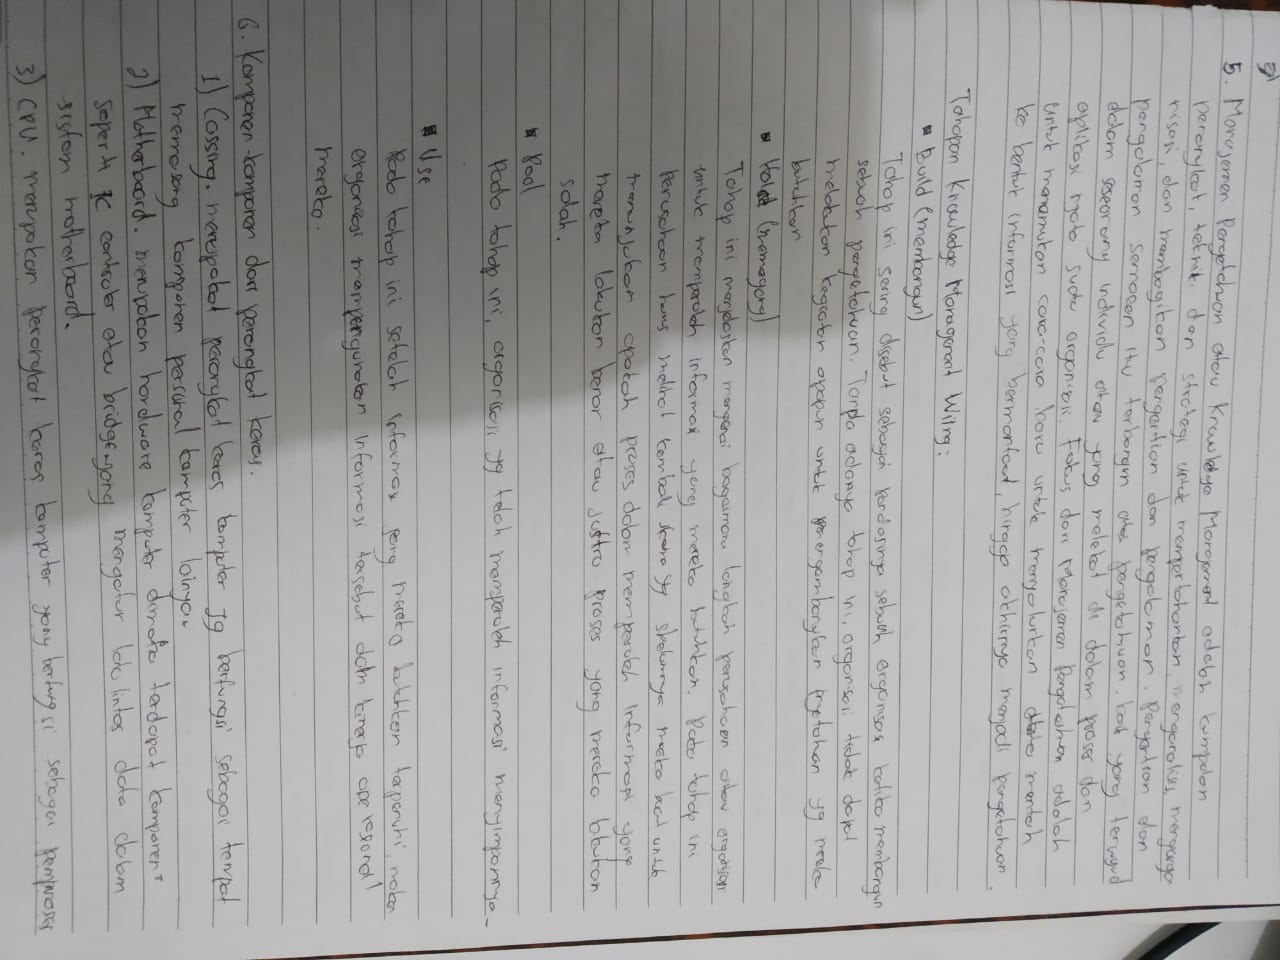 5. Manajemen Pengetahuan atau Knowledge Management adalah kumpulan
perangkat, teknik, dan strategi untuk mempertahankan, menganalisis, mengorga
nisasi, dan membagikan pengertian dan pengalaman. Pengertian dan
pengalaman semacam itu terbangun atas pengetahuan, baik yang terwujud
dalam seseorang individu atau yang melekat di dalam proses dan
aplikasi nyata suatu organisasi. Fokus dari Manajemen Pengetahuan adalah
untuk menemukan cara-cara baru untuk menyalurkan data mentah
ke bentuk informasi yang bermanfaat, hingga akhirnya menjadi pengetahuan.
Tahapan Knowledge Management Wiing:
▪ Build (membangun)
Tahap ini sering disebut sebagai pondasinya sebuah organisasi ketika membangun
sebuah pengetahuan. Tanpa adanya tahap ini, organisasi tidak dapat
melakukan kegiatan apapun untuk mengembangkan yg mereka
butuhkan
▪ Hold (memegang)
Tahap ini menjelaskan mengenai bagaimana langkah perusahaan atau organisasi
untuk memperoleh informasi yang mereka butuhkan. Pada tahap ini
perusahaan harus melihat kembali yg sebelumnya mereka buat untuk
menunjukan apakah proses dalam memperoleh informasi yang
mereka lakukan benar atau justru proses yang mereka lakukan
salah.
▪ Pool
Pada tahap ini, organisasi yg telah memperoleh informasi menyimpannya.
▪ Use
Pada tahap ini setelah informasi yang mereka butuhkan terpenuhi, maka
organisasi mempergunakan informasi tersebut dalam kinerja operasional
mereka.
6. Komponen-komponen dari perangkat keras.
1) Cassing. merupakan perangkat keras komputer yg berfungsi sebagai tempat
memasang komponen personal komputer lainya.
2) Motherboard. merupakan hardware komputer dimana terdapat komponen"
seperti IC controler atau bridge yang mengatur lalu lintas data dalam
sistem motherboard.
3) CPU. merupakan perangkat keras komputer yang berfungsi sebagai pemproses